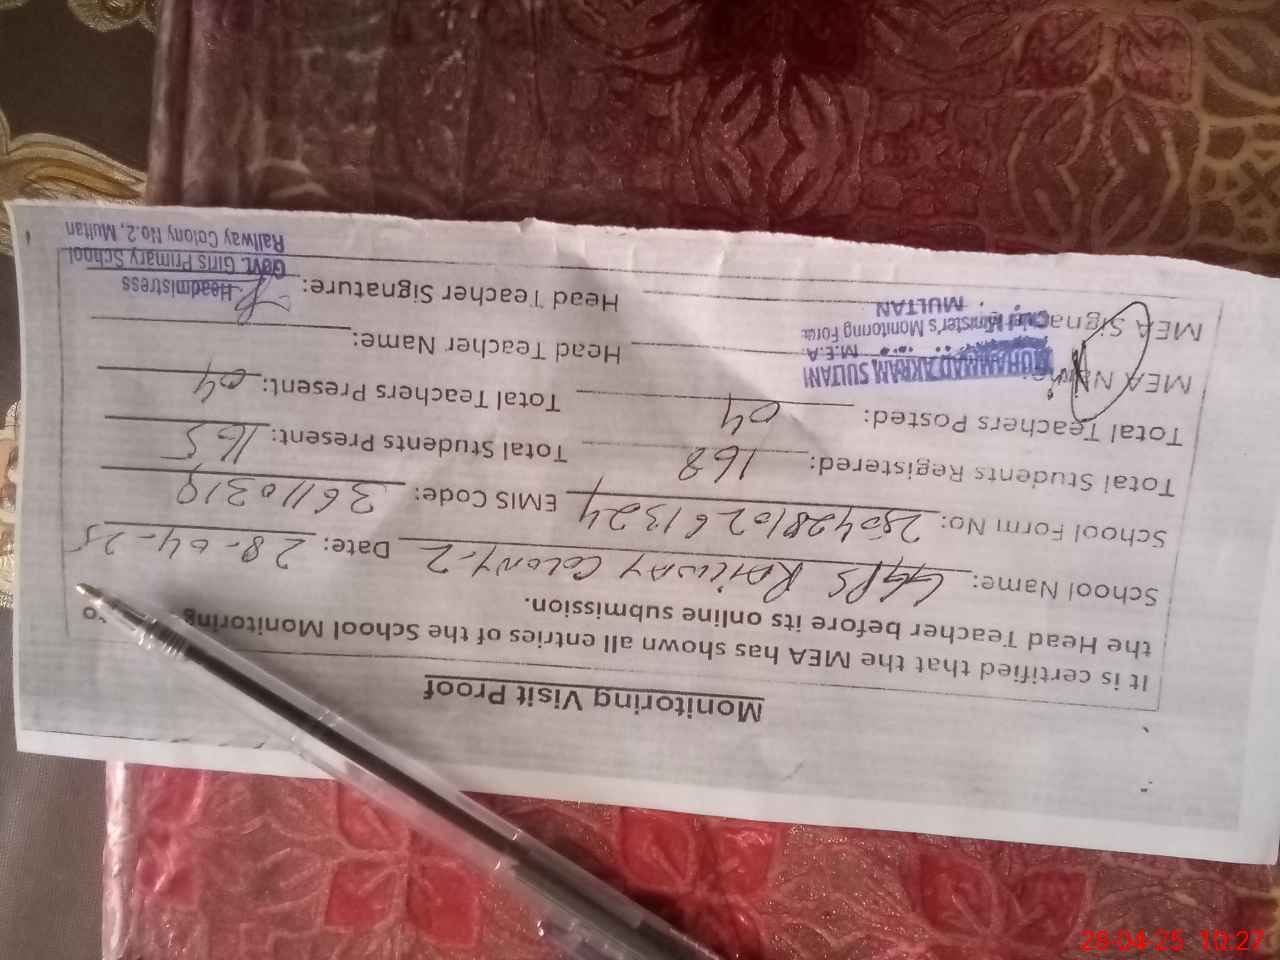 Monitoring Visit Proof
It is certified that the MEA has shown all entries of the School Monitoring to
the Head Teacher before its online submission.
School Name: GGPS RAILWAY COLONY-2 Date: 28-04-25
School Form No: 2804281026 1324 EMIS Code: 36110319
Total Students Registered: 168 Total Students Present: 165
Total Teachers Posted: 04 Total Teachers Present: 04
MEA Name: MUHAMMAD AKRAM SULTANI Head Teacher Name:
M.E.A.
Chief Minister's Monitoring Force
MULTAN
MEA Signature Head Teacher Signature:
Headmistress
Govt. Girls Primary School
Railway Colony No.2, Multan
28-04-25 10:27